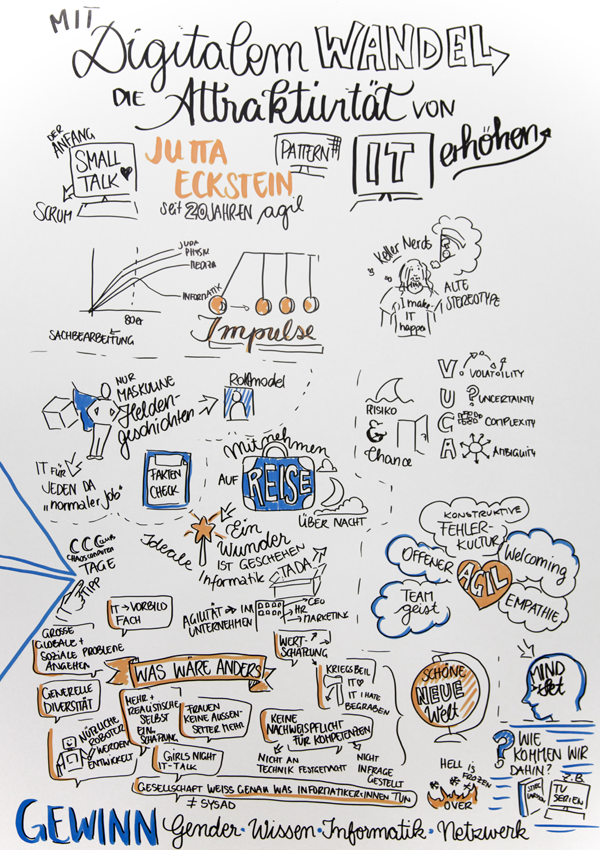 MIT
Digitalem WANDEL
DIE Attraktivität VON
IT erhöhen
DER
ANFANG
SMALL
TALK
SCRUM
JUTTA
ECKSTEIN
seit 20 JAHREN agil
PATTERN
JURA
PHYSIK
MEDIZIN
INFORMATIK
80er
SACHBEARBEITUNG
Impulse
Keller Nerds
ALTE
STEREOTYPE
I make
IT
happen
NUR
MASKULINE
Helden-
geschichten
Rollmodel
RISIKO
&
Chance
V VOLATILITY
U UNCERTAINTY
C COMPLEXITY
A AMBIGUITY
IT FÜR
JEDEN DA
„normaler Job“
FAKTEN
CHECK
Mitnehmen
AUF
REISE
ÜBER NACHT
Ideale
Ein
Wunder
IST GESCHEHEN
Informatik
TADA
CCC
CHAOSCOMPUTER
TAGE
TIPP
KONSTRUKTIVE
FEHLER-
KULTUR
OFFENER
Welcoming
AGIL
TEAM
geist
EMPATHIE
IT → VORBILD
FACH
AGILITÄT IM
UNTERNEHMEN
CEO
HR
MARKETING
WERT-
SCHÄTZUNG
GROSSE
GLOBALE +
SOZIALE PROBLEME
ANGEHEN
WAS WÄRE ANDERS
KRIEGSBEIL
IT ♡
IT I HATE
BEGRABEN
SCHÖNE
NEUE
Welt
MIND
set
GENERELLE
DIVERSITÄT
MEHR +
REALISTISCHE
SELBST
EIN
SCHÄTZUNG
FRAUEN
KEINE AUSSEN-
SEITER MEHR
KEINE
NACHWEISPFLICHT
FÜR KOMPETENZEN
NÜTZLICHE
ROBOTER
WERDEN
ENTWICKELT
GIRLS NIGHT
IT-TALK
NICHT AN
TECHNIK FESTGEMACHT
NICHT
INFRAGE
GESTELLT
HELL
IS
FROZEN
OVER
WIE
KOMMEN WIR
DAHIN?
Z.B.
TV
SERIEN
GESELLSCHAFT WEISS GENAU WAS INFORMATIKER*INNEN TUN
# SYSAD
GEWINN Gender · Wissen · Informatik · Netzwerk